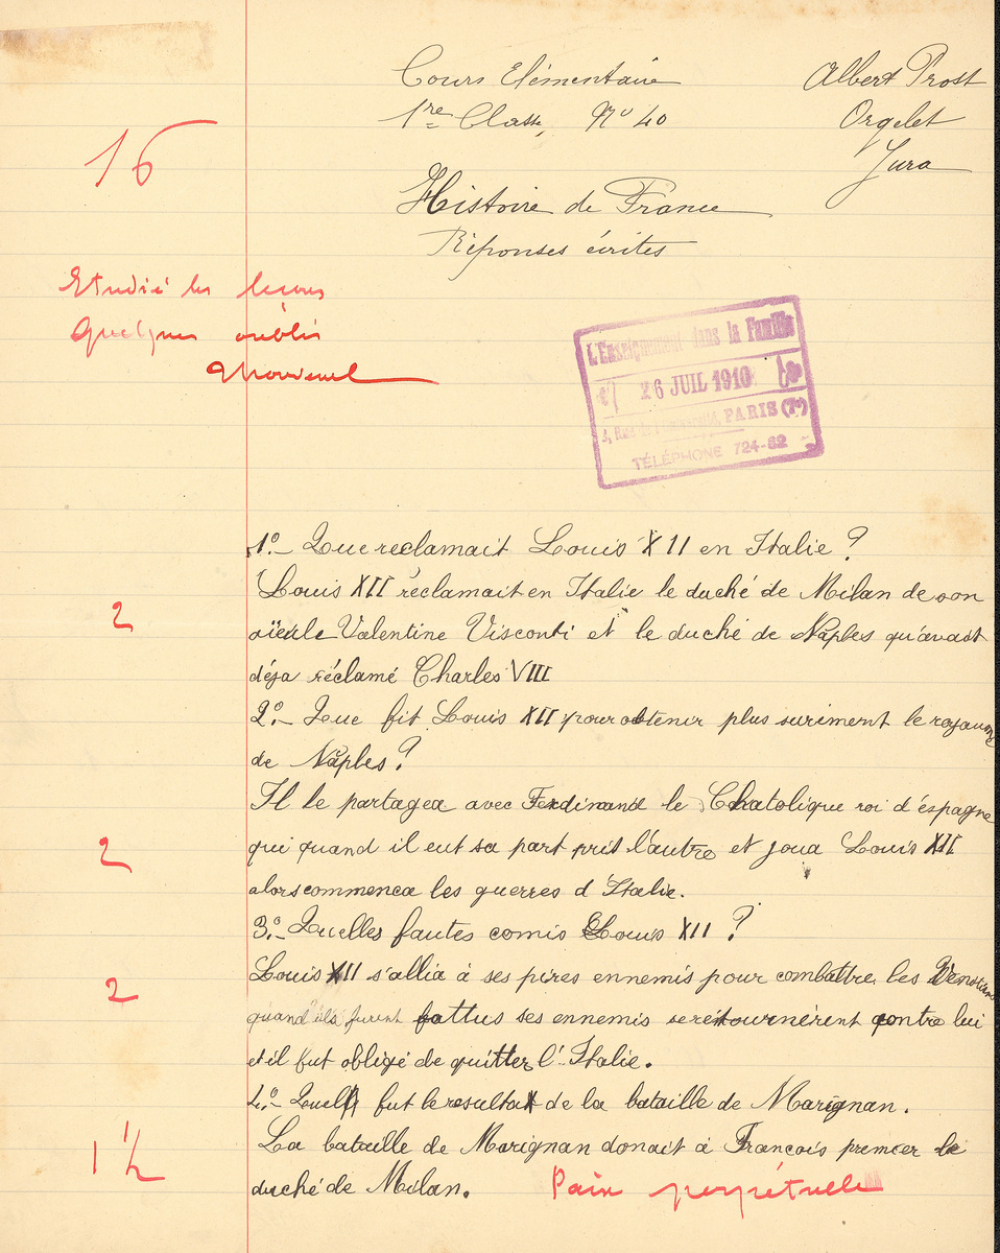 Cours Elémentaire
Albert Prost
1re Classe, No 40
Orgelet
Jura
16
Histoire de France
Réponses écrites
Etudié les leçons
Quelques oublis
L'Enseignement dans la Famille
26 JUIL 1910
PARIS (7e)
TÉLÉPHONE 724-62
1o.- Que reclamait Louis XII en Italie ?
Louis XII réclamait en Italie le duché de Milan de son
2
aïeule Valentine Visconti et le duché de Naples qu'avait
déja réclamé Charles VIII
2o.- Que fit Louis XII pour obtenir plus surement le royaume
de Naples ?
Il le partagea avec Ferdinand le Chatolique roi d'espagne
2
qui quand il eut sa part prit l'autre et joua Louis XII
alors commenca les guerres d'Italie.
3o.- Quelles fautes comis Louis XII ?
Louis XII s'allia à ses pires ennemis pour combattre les Venitiens
2
quand ils furent battus ses ennemis se retournèrent contre lui
et il fut obligé de quitter l'Italie.
4o.- Quel fut le resultat de la bataille de Marignan.
1 1/2
La bataille de Marignan donait à Francois premier le
duché de Milan. Paix perpétuelle